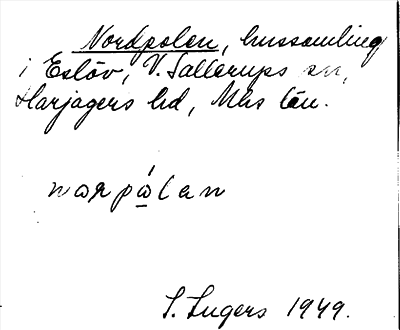 Nordpolen, hussamling
i Eslöv, V. Sallerups sn,
Harjagers hd, Mhs län.
norpólan
S. Ingers 1949.